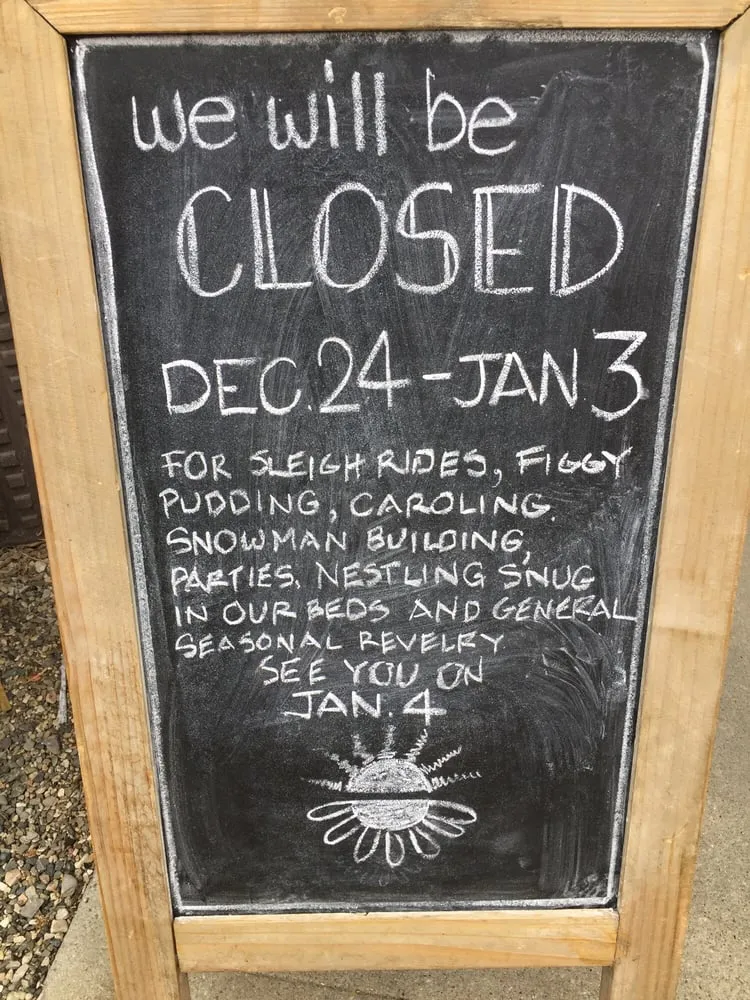 we will be
CLOSED
DEC. 24 - JAN 3
FOR SLEIGH RIDES, FIGGY
PUDDING, CAROLING.
SNOWMAN BUILDING,
PARTIES, NESTLING SNUG
IN OUR BEDS AND GENERAL
SEASONAL REVELRY
SEE YOU ON
JAN. 4